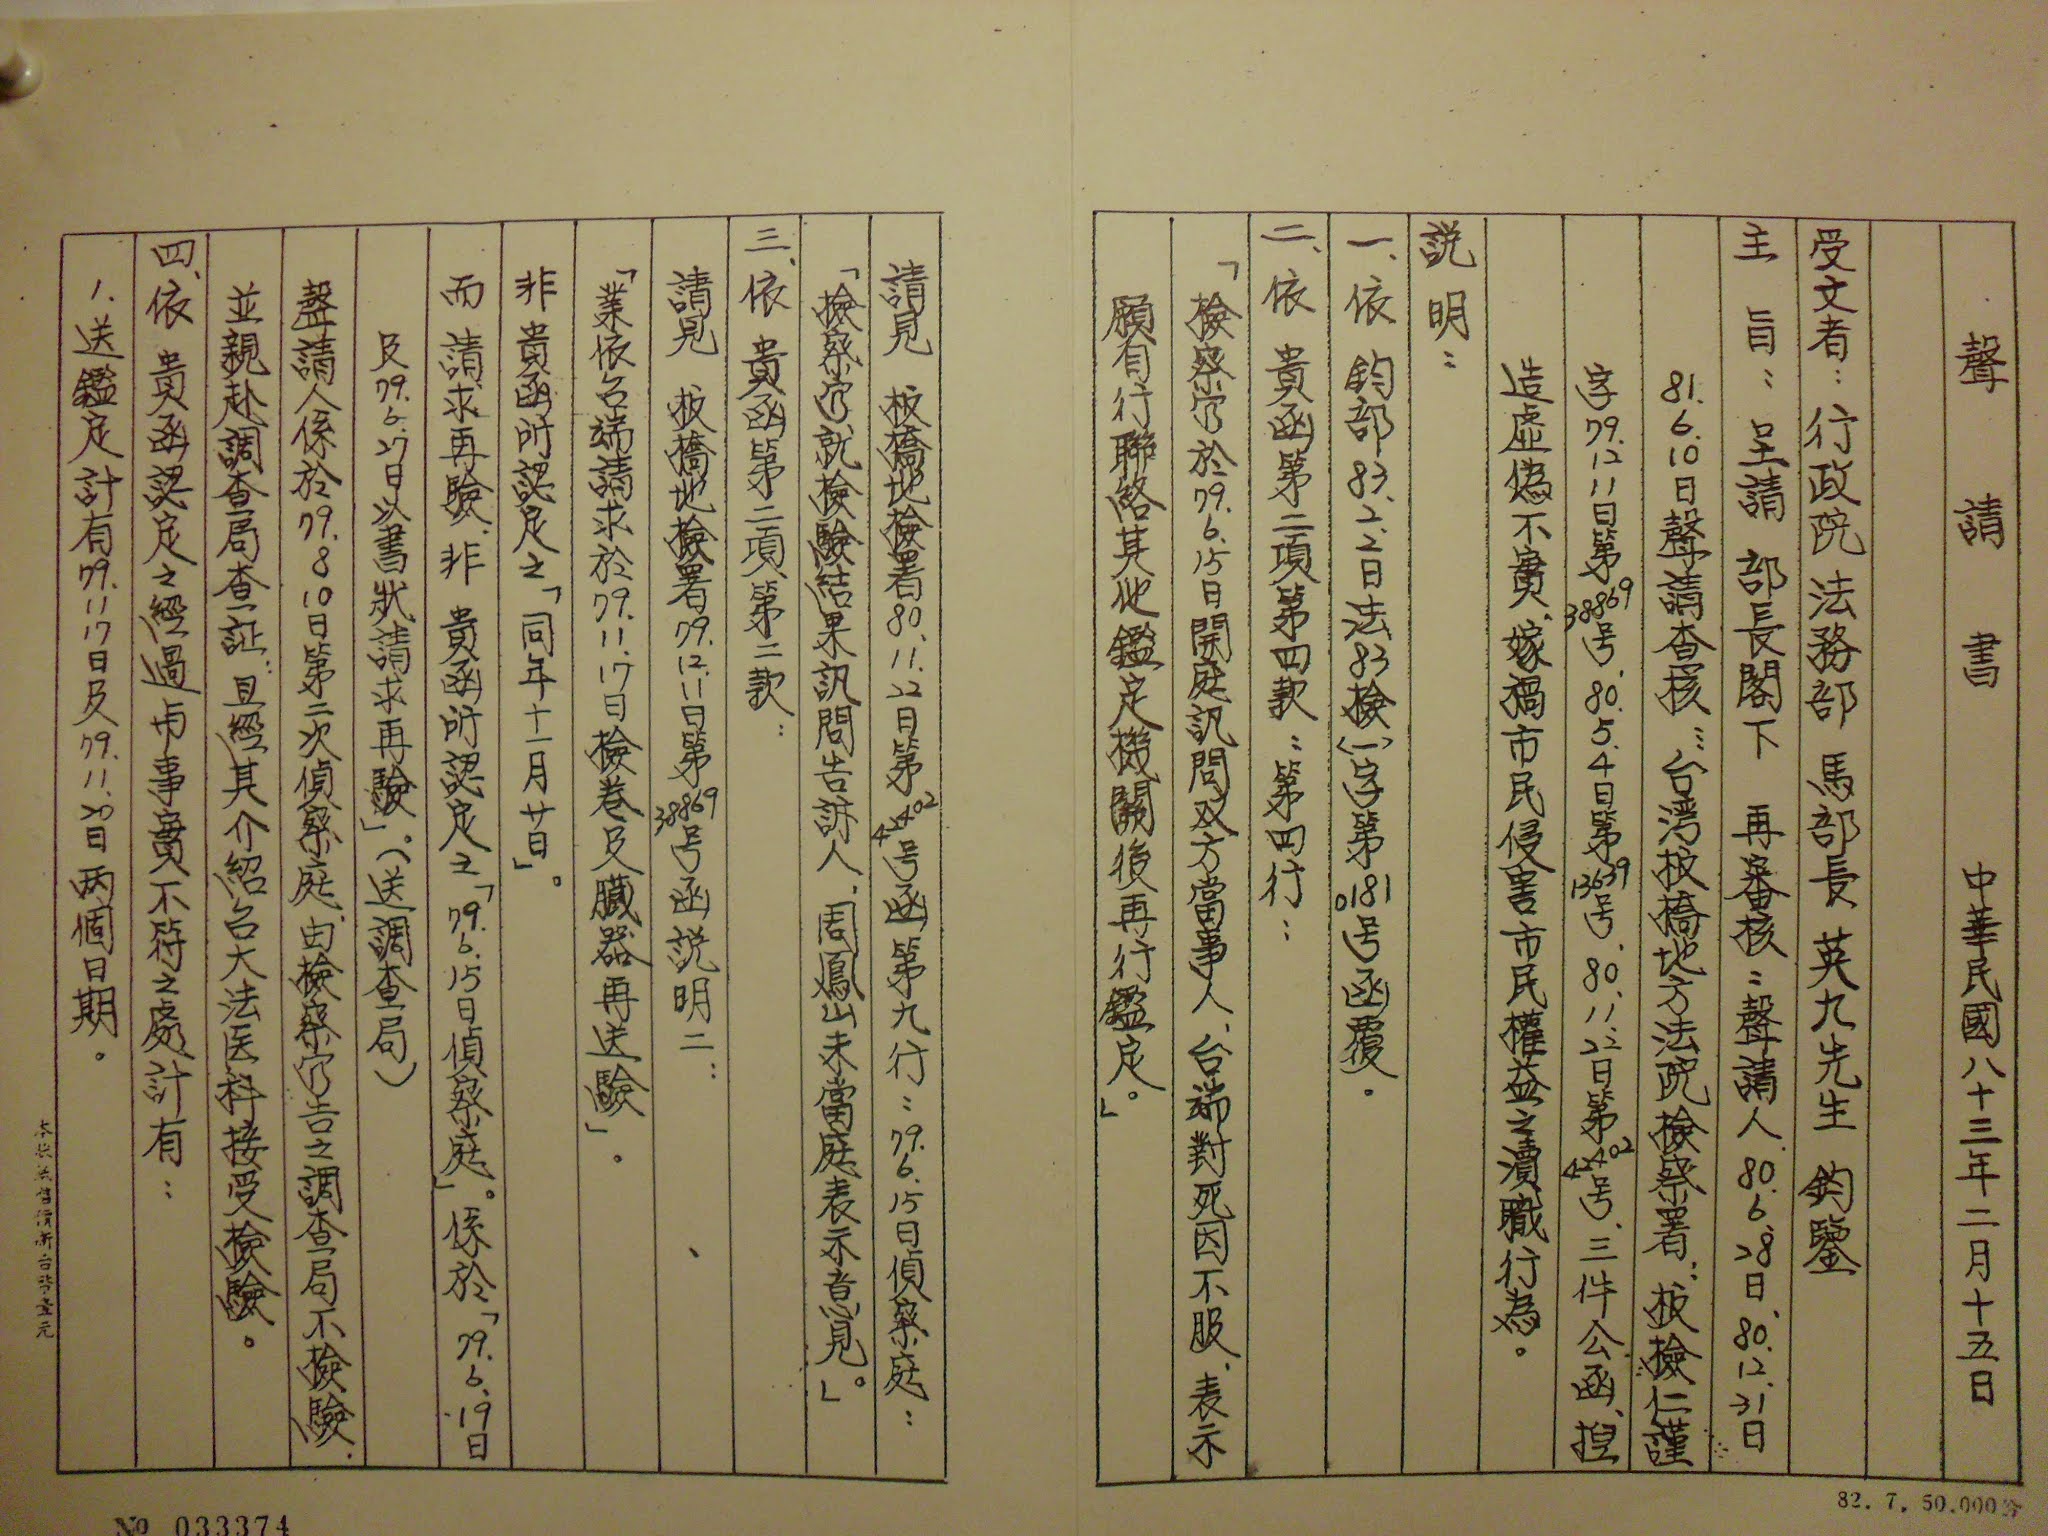 聲請書 中華民國八十三年二月十五日
受文者：行政院法務部 馬部長英九先生 鈞鑒
主旨：呈請 部長閣下 再審核：聲請人80.6.28日、80.12.31日
81.6.10日聲請查核…台湾板橋地方法院檢察署：板檢仁謹
字79.12.11日第38869号、80.5.4日第13639号、80.11.22日第42402号、三件公函、揑
造虛偽不實、嫁禍市民侵害市民權益之瀆職行為。
説明：
一、依 鈞部83.2.2日法83檢(一)字第0181号函覆。
二、依 貴函第二項第四款：第四行：
「檢察官於79.6.15日開庭訊問双方當事人、台端對死因不服、表示
願有行聯絡其他鑑定機關後再行鑑定。」
請見 板橋地檢署80.11.22日第42402号函第九行：79.6.15日偵察庭：
「檢察官就檢驗結果訊問告訴人、周鳳山未當庭表示意見。」
三、依 貴函第二項第二款：
請見 板橋地檢署79.12.11日第38869号函説明二：
「業依台端請求於79.11.17日檢卷及臟器再送驗」。
非貴函所認定之「同年十一月廿日」。
而請求再驗、非 貴函所認定之「79.6.15日偵察庭」。係於「79.6.19日
及79.6.27日以書狀請求再驗」。（送調查局）
聲請人係於79.8.10日第二次偵察庭、由檢察官告之調查局不檢驗.
並親赴調查局查証：且經其介紹台大法医科接受檢驗。
四、依 貴函認定之經過与事實不符之處計有：
1.送鑑定計有79.11.17日及79.11.20日両個日期。
本狀紙售價新台幣壹元
№ 033374
82. 7. 50.000份